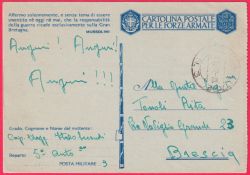 Affermo solennemente, e senza tema di essere
smentito nè oggi nè mai, che la responsabilità
della guerra ricade esclusivamente sulla Gran
Bretagna.
MUSSOLINI
Auguri! Auguri!
Auguri!!!
Grado, Cognome e Nome del mittente:
Cap. Magg.
Reparto 5° Auto
POSTA MILITARE 3
CARTOLINA POSTALE
PER LE FORZE ARMATE
Alla
Rita
23
Brescia